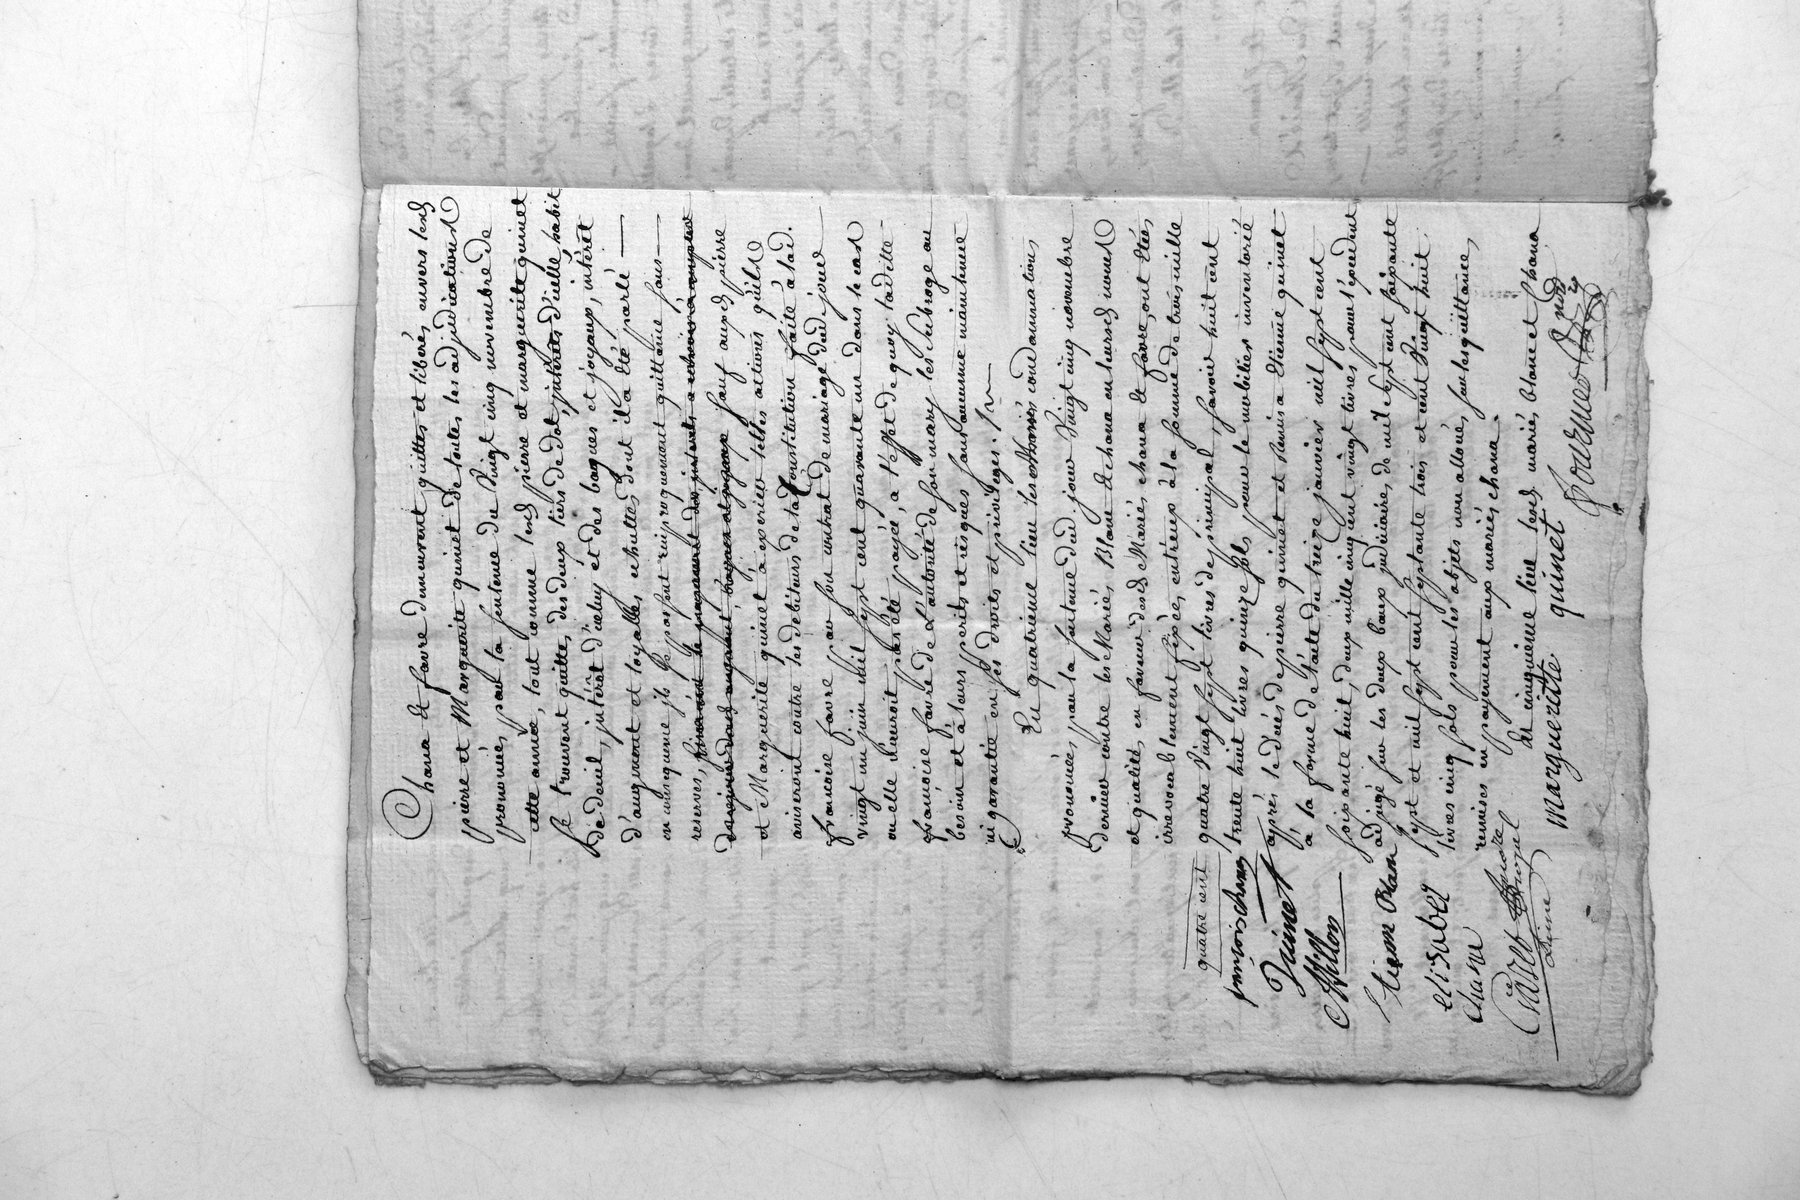 Chana & favre demeurent quittes et liberés envers lesd
pierre et Marguerite quinet de toutes les adjudications
prononcées par la sentence du vingt cinq novembre de
cette année, tout comme lesd pierre et marguerite quinet
se trouvent quittes, des deux tiers de dot, interets d'icelle, habit
de deuil, interet d'iceluy et des bagues et joyaux, interêt
d'augment et loyalles echutes dont il a été parlé —
en consequence ils se passent reciproquement quittance sans —
reserves,
sauf auxds pierre
et Marguerite quinet à exercer telles actions qu'ils
aviseront contre les debiteurs de la Constitution faite à lad.
francoise favre par son contrat de mariage dud jour
vingt un juin mil sept cent quarante un dans le cas
ou elle n'auroit pas été payée, a l'effet de quoy ladite
francoise favre de l'autorité de son mary les subroge au
besoin et à leurs perils et risques sans aucune maintenue
ni garantie en ses droits et privileges. /
En quatrieme lieu les condamnations
prononcées par la sentence dud jour vingt cinq novembre
dernier contre les Mariés Blanc & chana en leurs noms
et qualités, en faveur desd Mariés chana & favre, ont étés
irrevocablement fixées, entr'eux à la somme de trois mille
quatre cent
quatre vingt sept livres de principal, savoir huit cent
trente huit livres quinze sols, pour le mobilier inventorié
après le décès de pierre quinet et remis a Etienne quinet
à la forme de l'acte du treize janvier mil sept cent
soixante huit, deux mille cinq cent vingt livres pour l'excedent
adjugé sur les deux baux judiciaires de mil sept cent soixante
sept et mil sept cent septante trois et cent vingt huit
livres cinq sols pour les objets non alloués, sur les quittances
remises en payement aux mariés chana.
En cinquieme lieu lesd mariés blanc et chana
françois chana
Quinet
Etienne Blanc
elisabet
chana
marguerite quinet